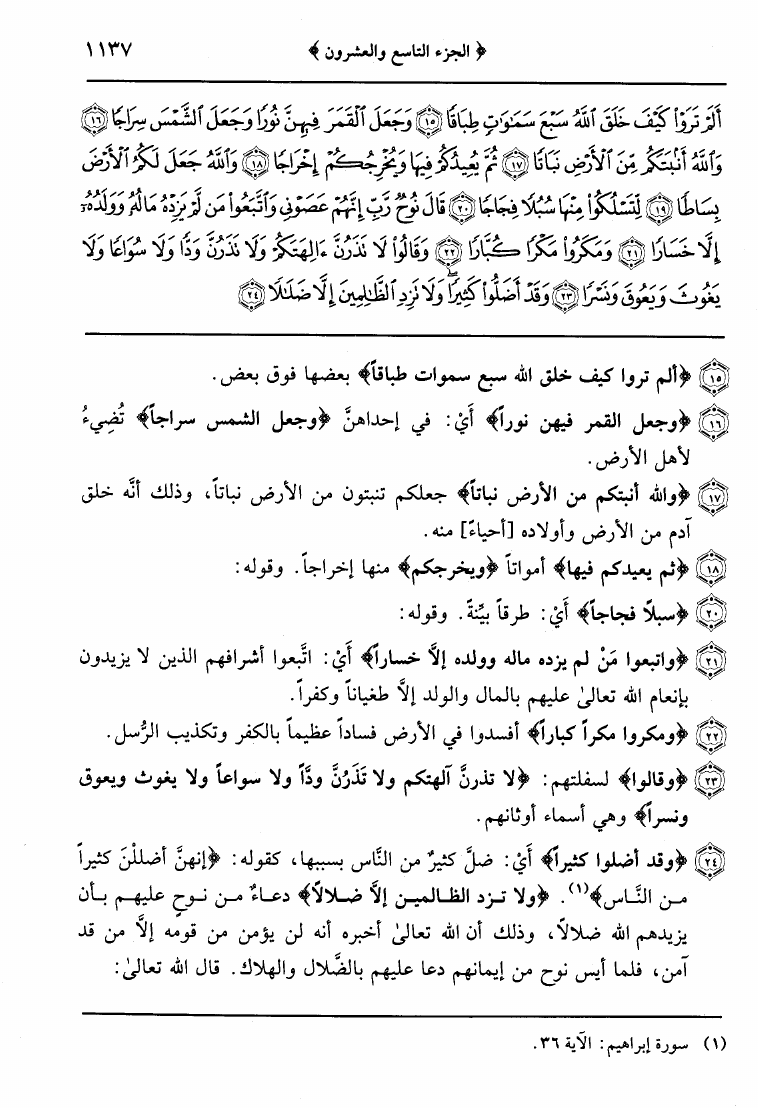 ﴿ الجزء التاسع والعشرون ﴾ ١١٣٧
أَلَمْ تَرَوْا۟ كَيْفَ خَلَقَ ٱللَّهُ سَبْعَ سَمَٰوَٰتٍ طِبَاقًا ١٥ وَجَعَلَ ٱلْقَمَرَ فِيهِنَّ نُورًا وَجَعَلَ ٱلشَّمْسَ سِرَاجًا ١٦
وَٱللَّهُ أَنۢبَتَكُم مِّنَ ٱلْأَرْضِ نَبَاتًا ١٧ ثُمَّ يُعِيدُكُمْ فِيهَا وَيُخْرِجُكُمْ إِخْرَاجًا ١٨ وَٱللَّهُ جَعَلَ لَكُمُ ٱلْأَرْضَ
بِسَاطًا ١٩ لِّتَسْلُكُوا۟ مِنْهَا سُبُلًا فِجَاجًا ٢٠ قَالَ نُوحٌ رَّبِّ إِنَّهُمْ عَصَوْنِى وَٱتَّبَعُوا۟ مَن لَّمْ يَزِدْهُ مَالُهُۥ وَوَلَدُهُۥٓ
إِلَّا خَسَارًا ٢١ وَمَكَرُوا۟ مَكْرًا كُبَّارًا ٢٢ وَقَالُوا۟ لَا تَذَرُنَّ ءَالِهَتَكُمْ وَلَا تَذَرُنَّ وَدًّا وَلَا سُوَاعًا وَلَا
يَغُوثَ وَيَعُوقَ وَنَسْرًا ٢٣ وَقَدْ أَضَلُّوا۟ كَثِيرًا ۖ وَلَا تَزِدِ ٱلظَّٰلِمِينَ إِلَّا ضَلَٰلًا ٢٤
١٥ ﴿ألم تروا كيف خلق الله سبع سموات طباقاً﴾ بعضها فوق بعض.
١٦ ﴿وجعل القمر فيهن نوراً﴾ أَيْ: في إحداهنَّ ﴿وجعل الشمس سراجاً﴾ تُضِيءُ
لأهل الأرض.
١٧ ﴿والله أنبتكم من الأرض نباتاً﴾ جعلكم تنبتون من الأرض نباتاً، وذلك أنَّه خلق
آدم من الأرض وأولاده [أحياءً] منه.
١٨ ﴿ثم يعيدكم فيها﴾ أمواتاً ﴿ويخرجكم﴾ منها إخراجاً. وقوله:
٢٠ ﴿سبلاً فجاجاً﴾ أَيْ: طرقاً بيِّنةً. وقوله:
٢١ ﴿واتبعوا مَنْ لم يزده ماله وولده إلاَّ خساراً﴾ أَيْ: اتَّبعوا أشرافهم الذين لا يزيدون
بإنعام الله تعالىٰ عليهم بالمال والولد إلاَّ طغياناً وكفراً.
٢٢ ﴿ومكروا مكراً كباراً﴾ أفسدوا في الأرض فساداً عظيماً بالكفر وتكذيب الرُّسل.
٢٣ ﴿وقالوا﴾ لسفلتهم: ﴿لا تذرنَّ آلهتكم ولا تَذَرُنَّ ودَّاً ولا سواعاً ولا يغوث ويعوق
ونسراً﴾ وهي أسماء أوثانهم.
٢٤ ﴿وقد أضلوا كثيراً﴾ أَيْ: ضلَّ كثيرٌ من النَّاس بسببها، كقوله: ﴿إنهنَّ أضللْنَ كثيراً
من النَّاس﴾(١). ﴿ولا تزد الظالمين إلاَّ ضلالاً﴾ دعاءٌ من نوحٍ عليهم بأن
يزيدهم الله ضلالاً، وذلك أن الله تعالىٰ أخبره أنه لن يؤمن من قومه إلاَّ من قد
آمن، فلما أيس نوح من إيمانهم دعا عليهم بالضَّلال والهلاك. قال الله تعالىٰ:
(١) سورة إبراهيم: الآية ٣٦.